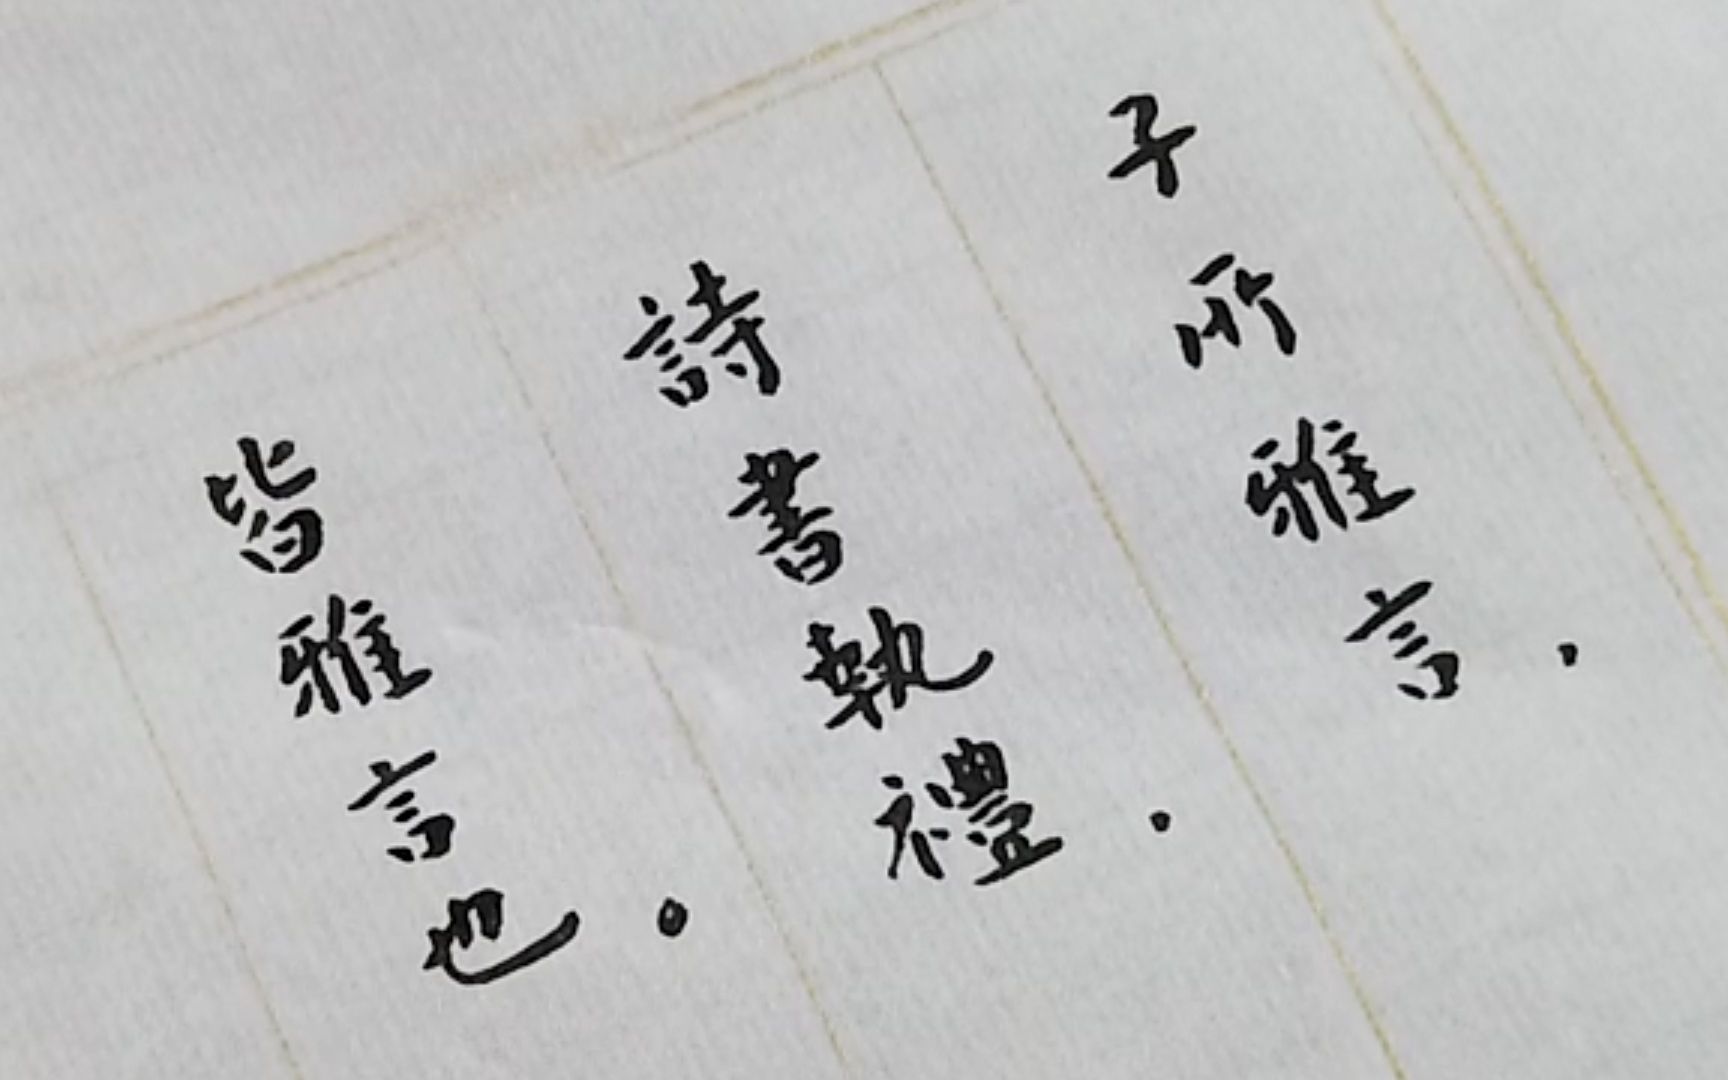 子所雅言．
詩書執禮．
皆雅言也。